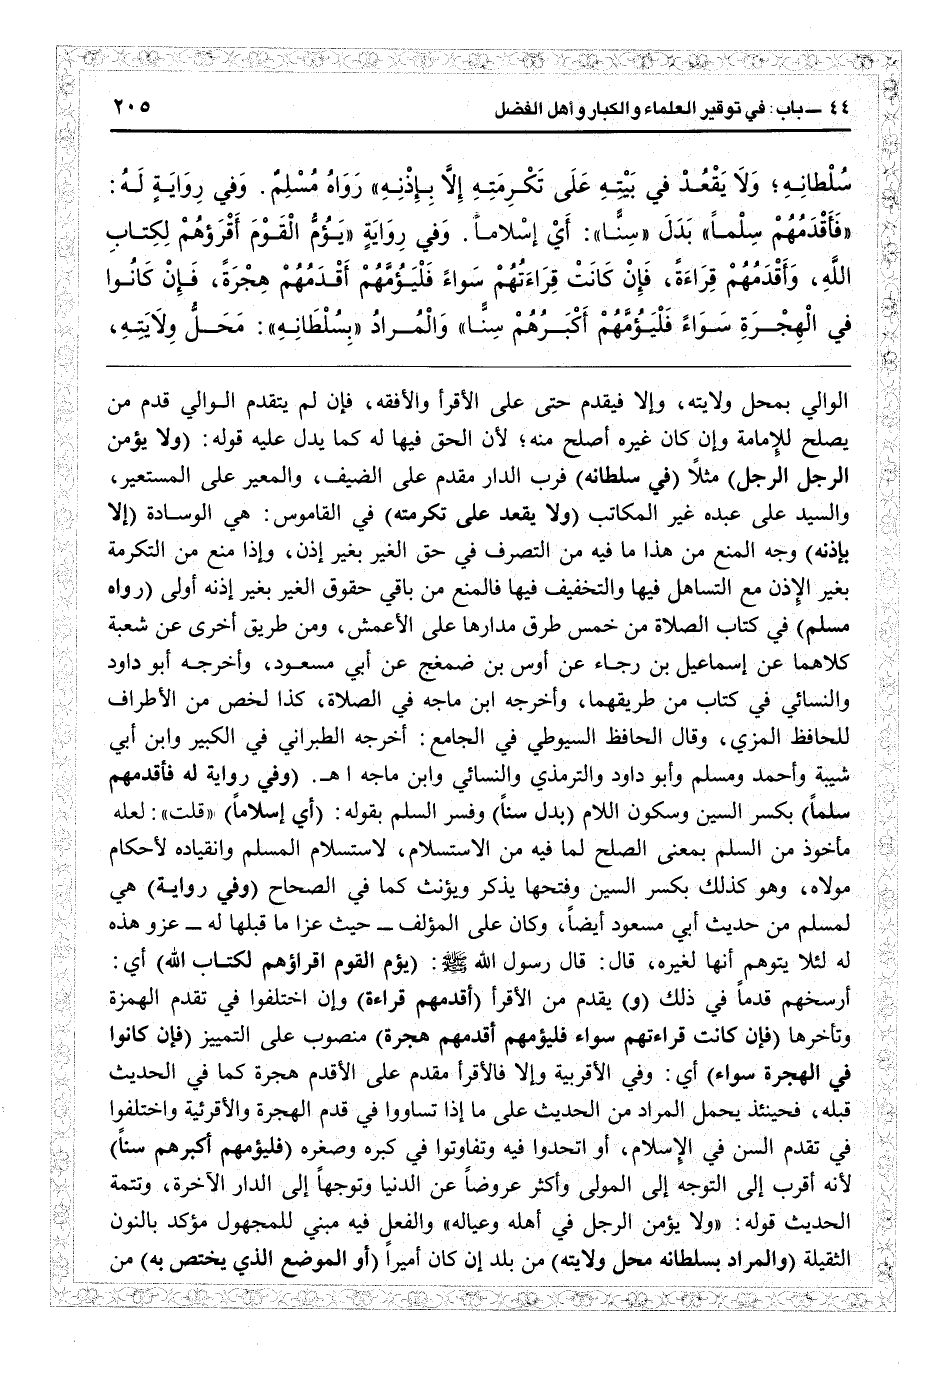 ٤٤ ـ باب: في توقير العلماء والكبار وأهل الفضل ٢٠٥
سُلْطانِهِ؛ وَلَا يَقْعُدْ في بَيْتِهِ عَلَى تَكْرِمَتِهِ إلَّا بِإذْنِهِ» رَوَاهُ مُسْلِمٌ. وَفي رِوَايَةٍ لَهُ:
«فَأَقْدَمُهُمْ سِلْماً» بَدَلَ «سِنًّا»: أَيْ إسْلاماً. وَفي رِوَايَةٍ «يَؤُمُّ الْقَوْمَ أَقْرَؤُهُمْ لِكِتَابِ
اللَّهِ، وَأَقْدَمُهُمْ قِرَاءَةً، فَإنْ كَانَتْ قِرَاءَتُهُمْ سَواءً فَلْيَؤُمَّهُمْ أَقْدَمُهُمْ هِجْرَةً، فَإنْ كَانُوا
في الْهِجْرَةِ سَوَاءً فَلْيَؤُمَّهُمْ أَكْبَرُهُمْ سِنًّا» وَالْمُرادُ «بِسُلْطَانِهِ»: مَحَلُّ وِلَايَتِهِ،
الوالي بمحل ولايته، وإلا فيقدم حتى على الأقرأ والأفقه، فإن لم يتقدم الوالي قدم من
يصلح للإمامة وإن كان غيره أصلح منه؛ لأن الحق فيها له كما يدل عليه قوله: (ولا يؤمن
الرجل الرجل) مثلاً (في سلطانه) فرب الدار مقدم على الضيف، والمعير على المستعير،
والسيد على عبده غير المكاتب (ولا يقعد على تكرمته) في القاموس: هي الوسادة (إلا
بإذنه) وجه المنع من هذا ما فيه من التصرف في حق الغير بغير إذن، وإذا منع من التكرمة
بغير الإذن مع التساهل فيها والتخفيف فيها فالمنع من باقي حقوق الغير بغير إذنه أولى (رواه
مسلم) في كتاب الصلاة من خمس طرق مدارها على الأعمش، ومن طريق أخرى عن شعبة
كلاهما عن إسماعيل بن رجاء عن أوس بن ضمغج عن أبي مسعود، وأخرجه أبو داود
والنسائي في كتاب من طريقهما، وأخرجه ابن ماجه في الصلاة، كذا لخص من الأطراف
للحافظ المزي، وقال الحافظ السيوطي في الجامع: أخرجه الطبراني في الكبير وابن أبي
شيبة وأحمد ومسلم وأبو داود والترمذي والنسائي وابن ماجه ا هـ. (وفي رواية له فأقدمهم
سلماً) بكسر السين وسكون اللام (بدل سناً) وفسر السلم بقوله: (أي إسلاماً) «قلت»: لعله
مأخوذ من السلم بمعنى الصلح لما فيه من الاستسلام، لاستسلام المسلم وانقياده لأحكام
مولاه، وهو كذلك بكسر السين وفتحها يذكر ويؤنث كما في الصحاح (وفي رواية) هي
لمسلم من حديث أبي مسعود أيضاً، وكان على المؤلف ـ حيث عزا ما قبلها له ـ عزو هذه
له لئلا يتوهم أنها لغيره، قال: قال رسول الله ﷺ: (يؤم القوم اقراؤهم لكتاب الله) أي:
أرسخهم قدماً في ذلك (و) يقدم من الأقرأ (أقدمهم قراءة) وإن اختلفوا في تقدم الهمزة
وتأخرها (فإن كانت قراءتهم سواء فليؤمهم أقدمهم هجرة) منصوب على التمييز (فإن كانوا
في الهجرة سواء) أي: وفي الأقربية وإلا فالأقرأ مقدم على الأقدم هجرة كما في الحديث
قبله، فحينئذ يحمل المراد من الحديث على ما إذا تساووا في قدم الهجرة والأقرئية واختلفوا
في تقدم السن في الإسلام، أو اتحدوا فيه وتفاوتوا في كبره وصغره (فليؤمهم أكبرهم سناً)
لأنه أقرب إلى التوجه إلى المولى وأكثر عروضاً عن الدنيا وتوجهاً إلى الدار الآخرة، وتتمة
الحديث قوله: «ولا يؤمن الرجل في أهله وعياله» والفعل فيه مبني للمجهول مؤكد بالنون
الثقيلة (والمراد بسلطانه محل ولايته) من بلد إن كان أميراً (أو الموضع الذي يختص به) من